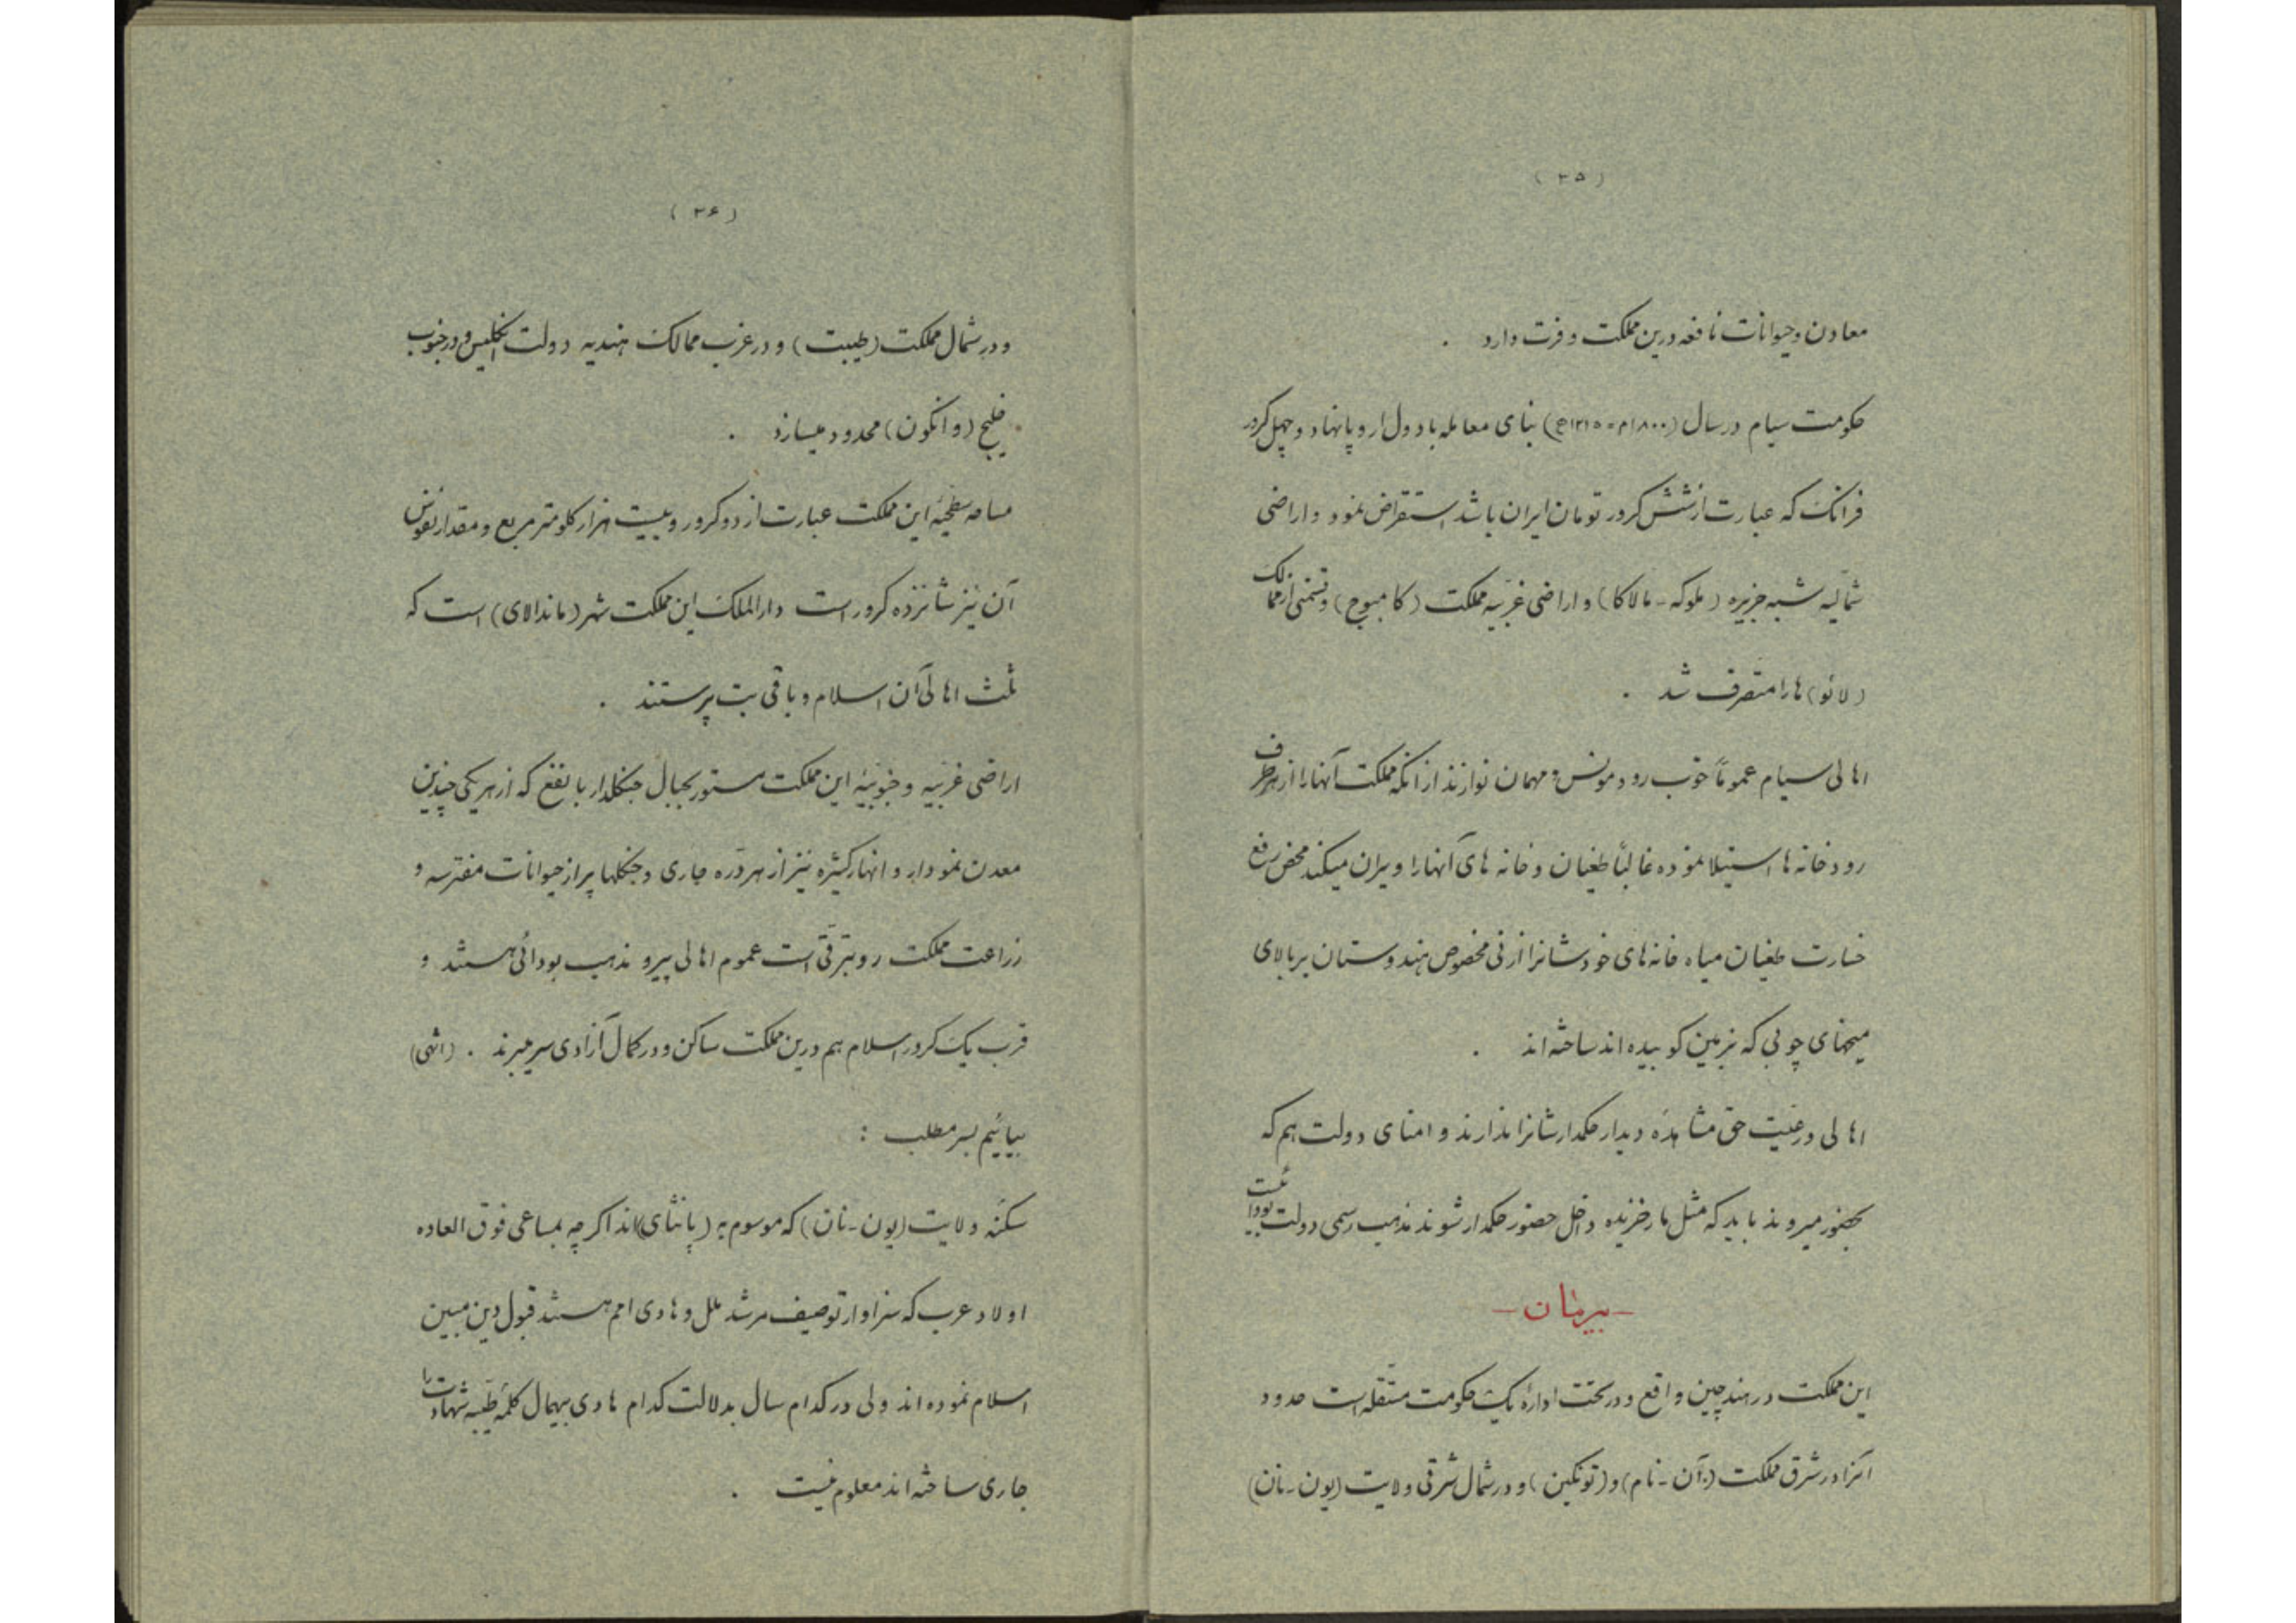 ( ۲۵ )
معاون وحیوانات نافعه درین مملکت وفرت دارد .
حکومت سیام در سال (۱۸۰۰م = ۱۲۱۵ﻫ) بنای معامله با دول اروپا نهاد و چهل کرور
فرانک که عبارت از شش کرور تومان ایران باشد استقراض نمود و اراضی
شمالیه شبه جزیره (ملوکه - مالاکا) و اراضی غربیه مملکت (کامبوج) و قسمتی از ممالک
(لائو) ها را متصرف شد .
اهالی سیام عموماً خوب رو و مونس و مهمان نوازند از آنکه مملکت آنها را از هر طرف
رودخانه ها استیلا نموده غالباً طغیان و خانه های آنها را ویران میکند محض رفع
خسارت طغیان میاه خانه های خودشانرا از نی مخصوص هندوستان بر بالای
میخهای چوبی که بزمین کوبیده اند ساخته اند .
اهالی و رعیت حق مشاهدهٔ دیدار حکمدارشانرا ندارند و امنای دولت هم که
بحضور میروند باید که مثل مار خزیده داخل حضور حکمدار شوند مذهب رسمی دولت بودائیست
- بیرمان -
این مملکت در هند چین واقع و در تحت ادارهٔ یک حکومت مستقله است حدود
آنرا در شرق مملکت (آن - نام) و (تونکین) و در شمال شرقی ولایت (یون - نان)
( ۲۶ )
و در شمال مملکت (طیبت) و در غرب ممالک هندیه دولت انگلیس و در جنوب
خلیج (وانکون) محدود میسازد .
مساحه سطحیهٔ این مملکت عبارت از دو کرور و بیست هزار کلومتر مربع و مقدار نفوس
آن نیز شانزده کرور است دارالملک این مملکت شهر (ماندالای) است که
ثلث اهالی آن اسلام و باقی بت پرستند .
اراضی غربیه و جنوبیهٔ این مملکت مستور بجبال جنگلدار با نفع که از هر یکی چندین
معدن نمودار و انهار کثیره نیز از هر دره جاری و جنگلها پر از حیوانات مفترسه و
زراعت مملکت رو بترقی است عموم اهالی پیرو مذهب بودائی هستند و
قرب یک کرور اسلام هم درین مملکت ساکن و در کمال آزادی بسر میبرند . (انتهی)
بیائیم بسر مطلب :
سکنه ولایت (یون - نان) که موسوم به (پانثای) اند اگر چه بمساعی فوق العاده
اولاد عرب که سزاوار توصیف مرشد ملل و هادی امم هستند قبول دین مبین
اسلام نموده اند ولی در کدام سال بدلالت کدام هادی بیهمال کلمهٔ طیبه شهادت را
جاری ساخته اند معلوم نیست .